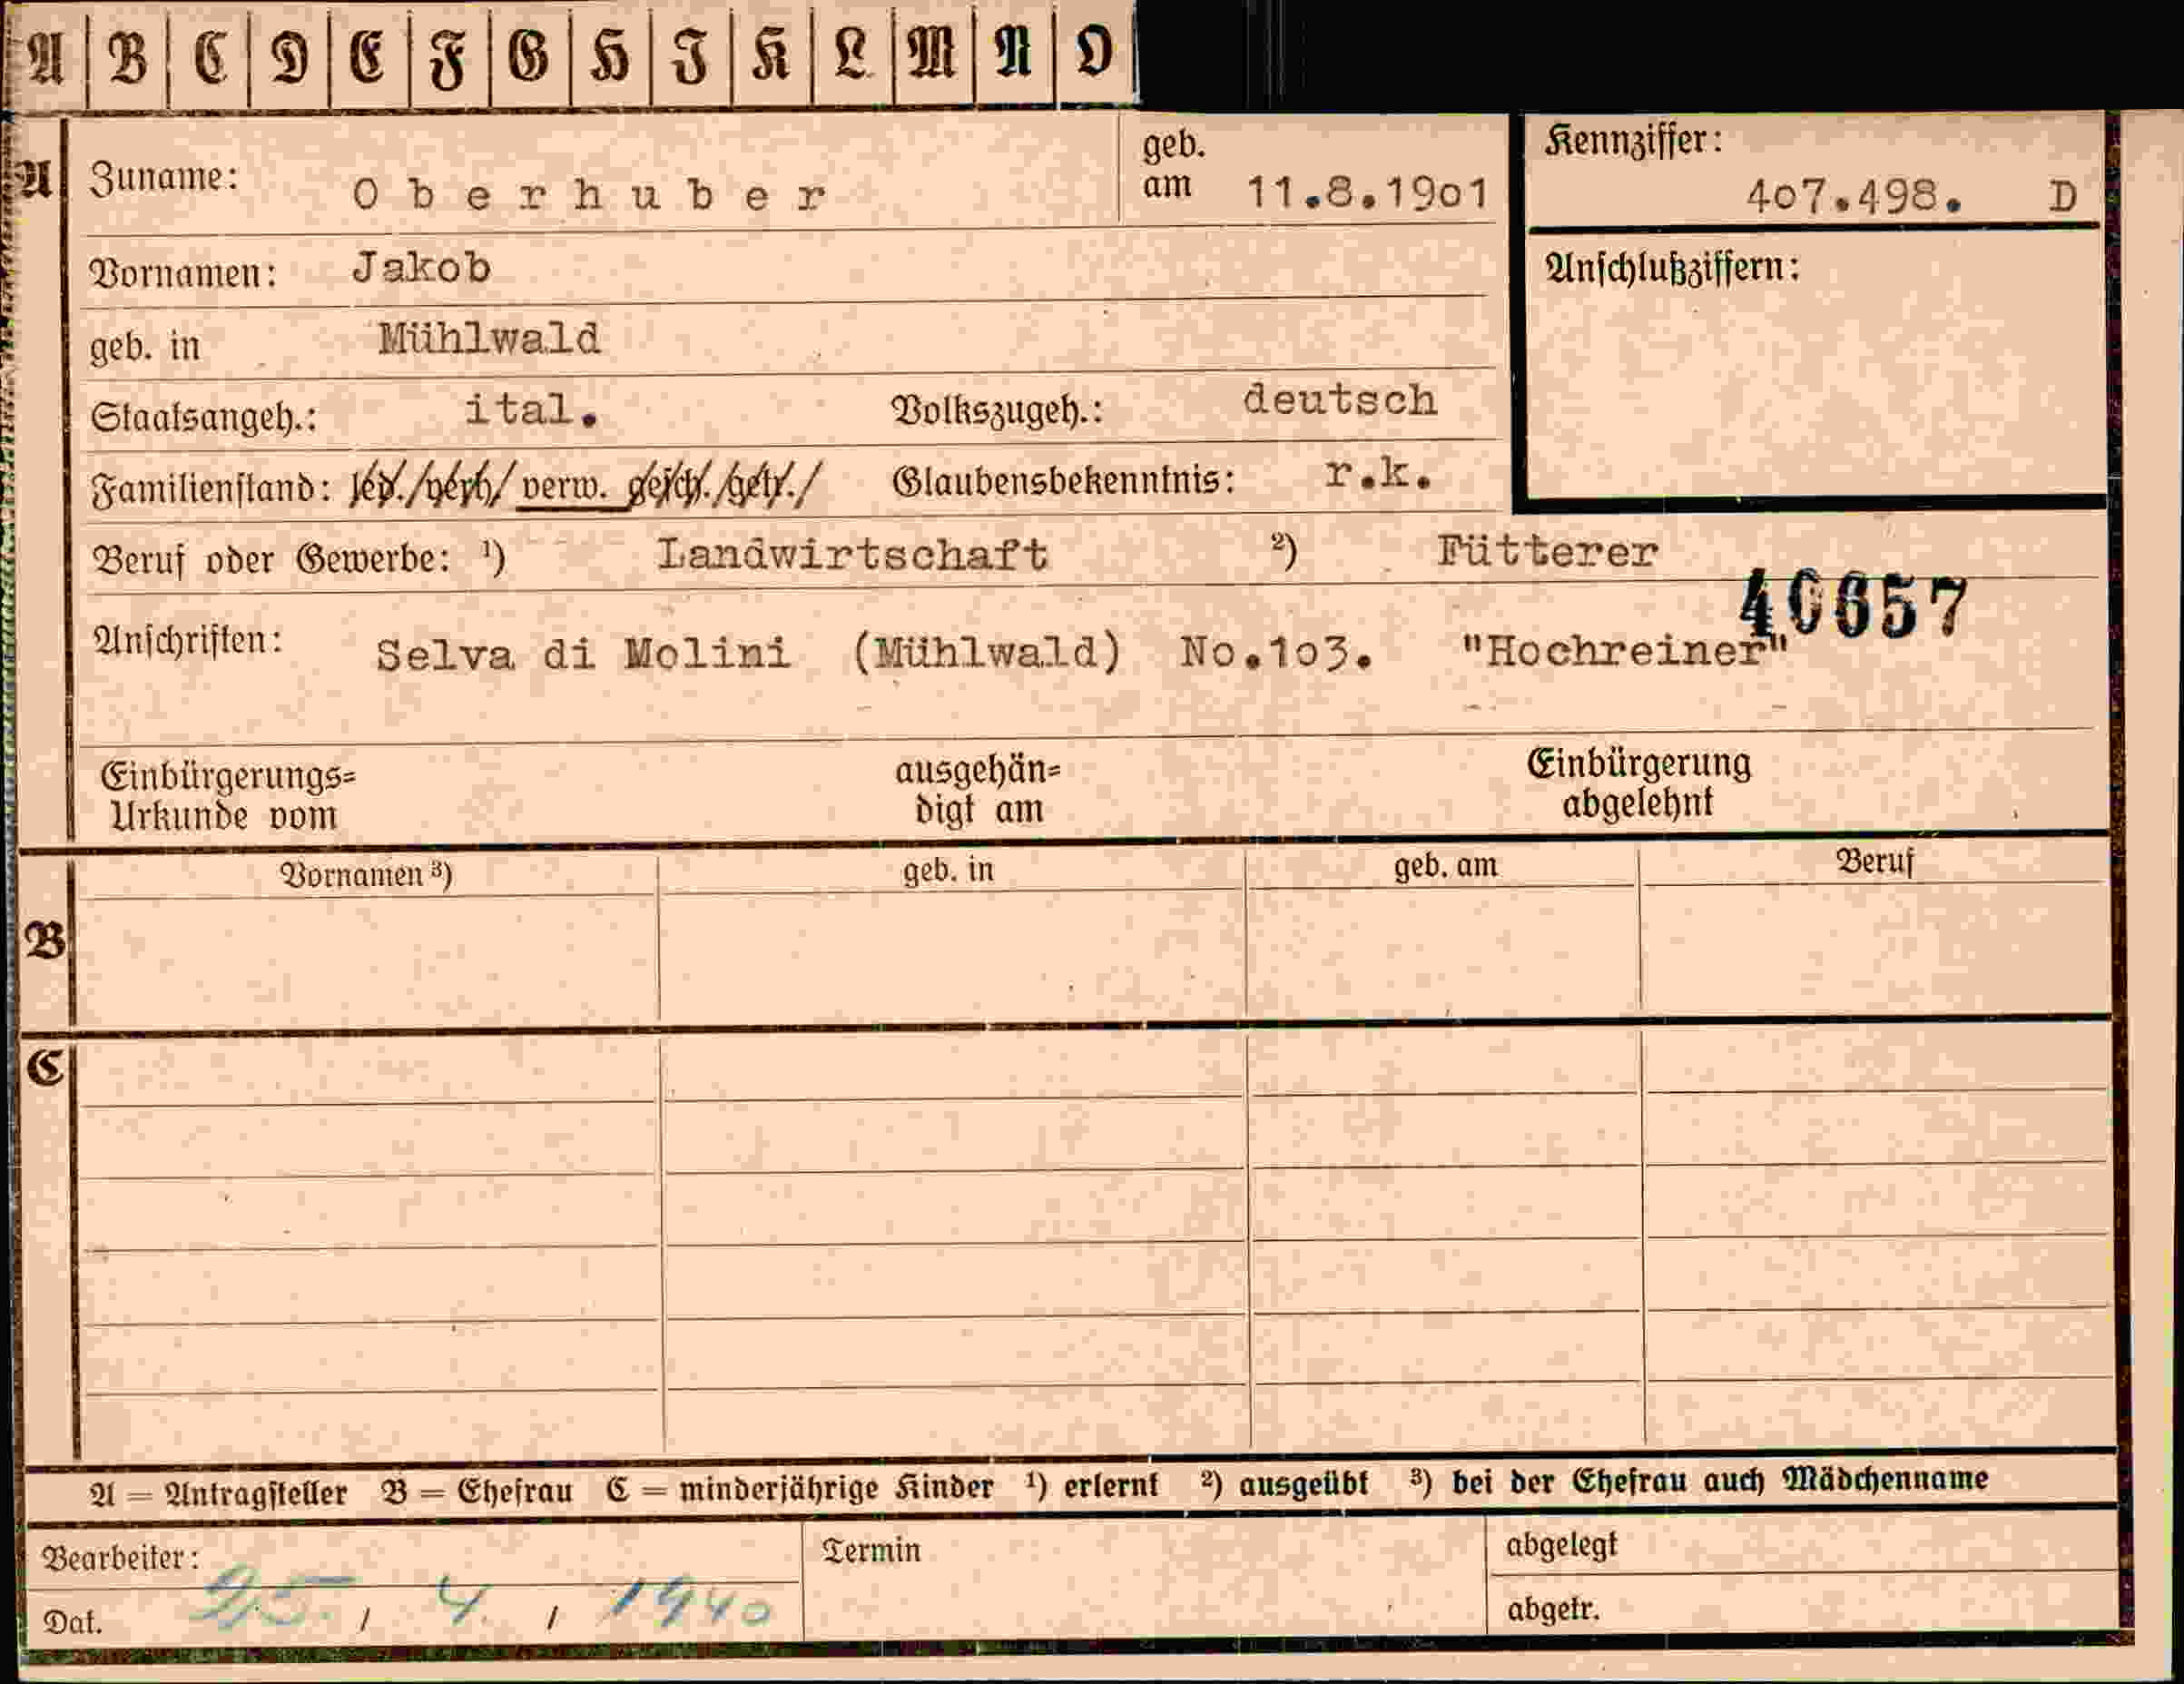 A B C D E F G H I K L M N O
A Zuname: Oberhuber geb. am 11.8.1901 Kennziffer: 407.498. D
Vornamen: Jakob Anschlußziffern:
geb. in Mühlwald
Staatsangeh.: ital. Volkszugeh.: deutsch
Familienstand: led./verh/ verw. gesch./getr./ Glaubensbekenntnis: r.k.
Beruf oder Gewerbe: ¹) Landwirtschaft ²) Fütterer
40657
Anschriften: Selva di Molini (Mühlwald) No.103. "Hochreiner"
Einbürgerungs= ausgehän= Einbürgerung
Urkunde vom digt am abgelehnt
Vornamen ³) geb. in geb. am Beruf
B
C
A = Antragsteller B = Ehefrau C = minderjährige Kinder ¹) erlernt ²) ausgeübt ³) bei der Ehefrau auch Mädchenname
Bearbeiter: Termin abgelegt
Dat. 25. / 4. / 1940 abgetr.